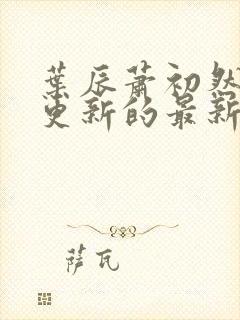 葉辰蕭初然
更新的最新
薩瓦